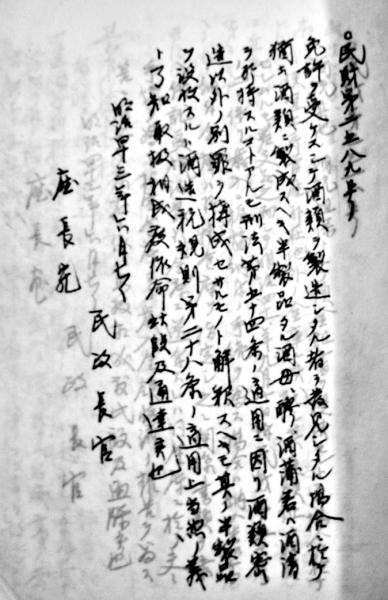 民財第二五八九号ノ一
免許ヲ受ケスシテ酒類ヲ製造シタル者ヲ発見シタル場合ニ於テ
猶ホ酒類ニ製成スヘキ半製品タル酒母、醪、酒
ヲ所持スルコトアルモ刑法第五十四条ノ適用ニ因リ酒類密
造以外ノ別罪ヲ構成セサルモノト解釈スヘキモ其ノ半製品
ヲ没収スルハ酒造税規則第二十八条ノ適用上当然ノ義
ト了知取扱相成度依命此段及通達候也
明治四十三年六月七日
民政長官
庁長宛